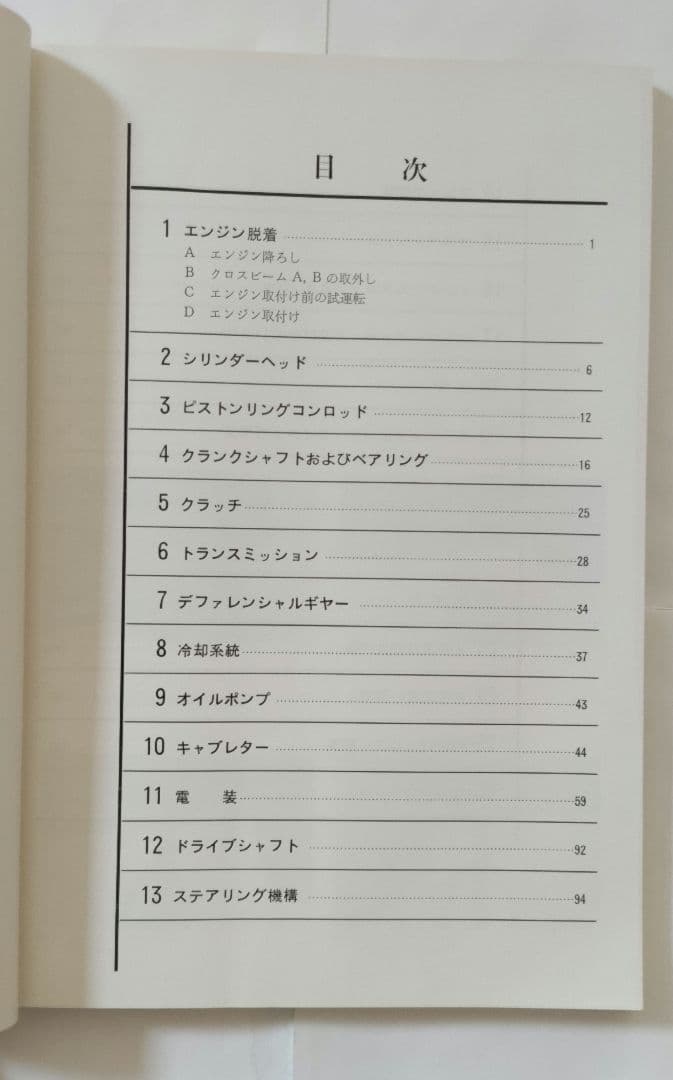 目　次
1 エンジン脱着 1
A エンジン降ろし
B クロスビーム A, B の取外し
C エンジン取付け前の試運転
D エンジン取付け
2 シリンダーヘッド 6
3 ピストンリングコンロッド 12
4 クランクシャフトおよびベアリング 16
5 クラッチ 25
6 トランスミッション 28
7 デファレンシャルギヤー 34
8 冷却系統 37
9 オイルポンプ 43
10 キャブレター 44
11 電　装 59
12 ドライブシャフト 92
13 ステアリング機構 94